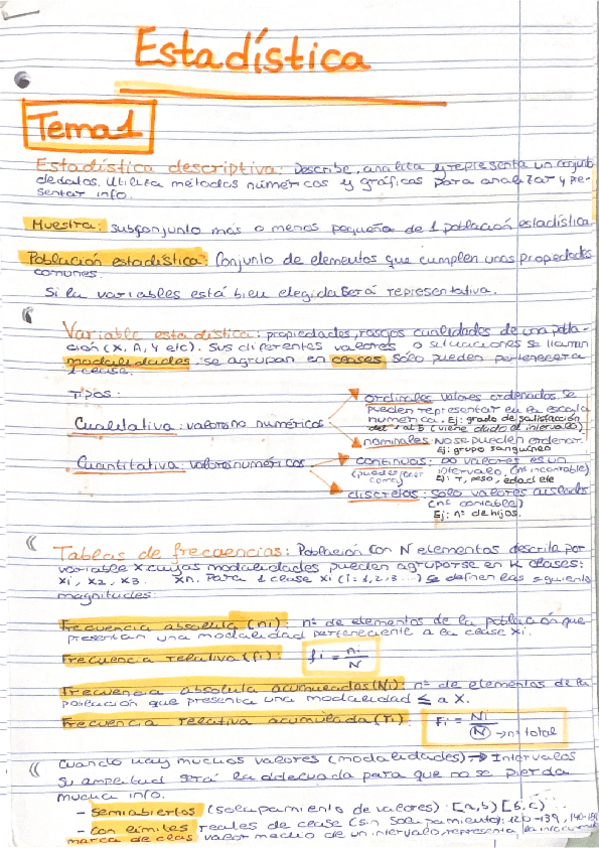 Estadística
Tema 1
Estadística descriptiva: Describe, analiza y representa un conjunto
de datos. Utiliza métodos numéricos y gráficos para analizar y pre-
sentar info.
Muestra: subconjunto más o menos pequeña de 1 población estadística.
Población estadística: Conjunto de elementos que cumplen unas propiedades
comunes.
Si la variables está bien elegida será representativa.
Variable estadística: propiedades, rasgos cualidades de una pobla-
ción (X, A, Y etc). Sus diferentes valores o situaciones se llaman
modalidades. se agrupan en clases. Sólo pueden pertenecer a
1 clase.
Tipos:
ordinales valores ordenados. Se
pueden representar en la escala
numérica. Ej: grado de satisfacción
del 1 al 5 (viene dado el intervalo)
Cualitativa: valores no numéricos
nominales No se pueden ordenar.
Ej: grupo sanguíneo
Cuantitativa: valores numéricos
continuos: ∞ valores es un
intervalo, (nº incontable)
Ej: T, peso, edad etc
discretos: solo valores aislados
(nº contable)
Ej: nº de hijos.
Tablas de frecuencias: Población con N elementos descrita por
variable X cuyas modalidades pueden agruparse en K clases:
X1, X2, X3. Xn. Para 1 clase Xi (i=1,2,3...) se definen las siguiente
magnitudes:
Frecuencia absoluta (ni): nº de elementos de la población que
presentan una modalidad perteneciente a la clase Xi.
Frecuencia relativa (fi): fi = ni/N
Frecuencia absoluta acumuladas (Ni): nº de elementos de la
población que presenta una modalidad ≤ a X.
Frecuencia relativa acumulada (Fi): Fi = Ni/N → nº total
Cuando hay muchos valores (modalidades) → Intervalos
Su amplitud será la adecuada para que no se pierda
mucha info.
- Semiabiertos (solapamiento de valores) [a,b) [b,c)
- Con límites reales de clase (sin solapamiento): 120-139, 140-159
marca de clas valor medio de un intervalo, representa